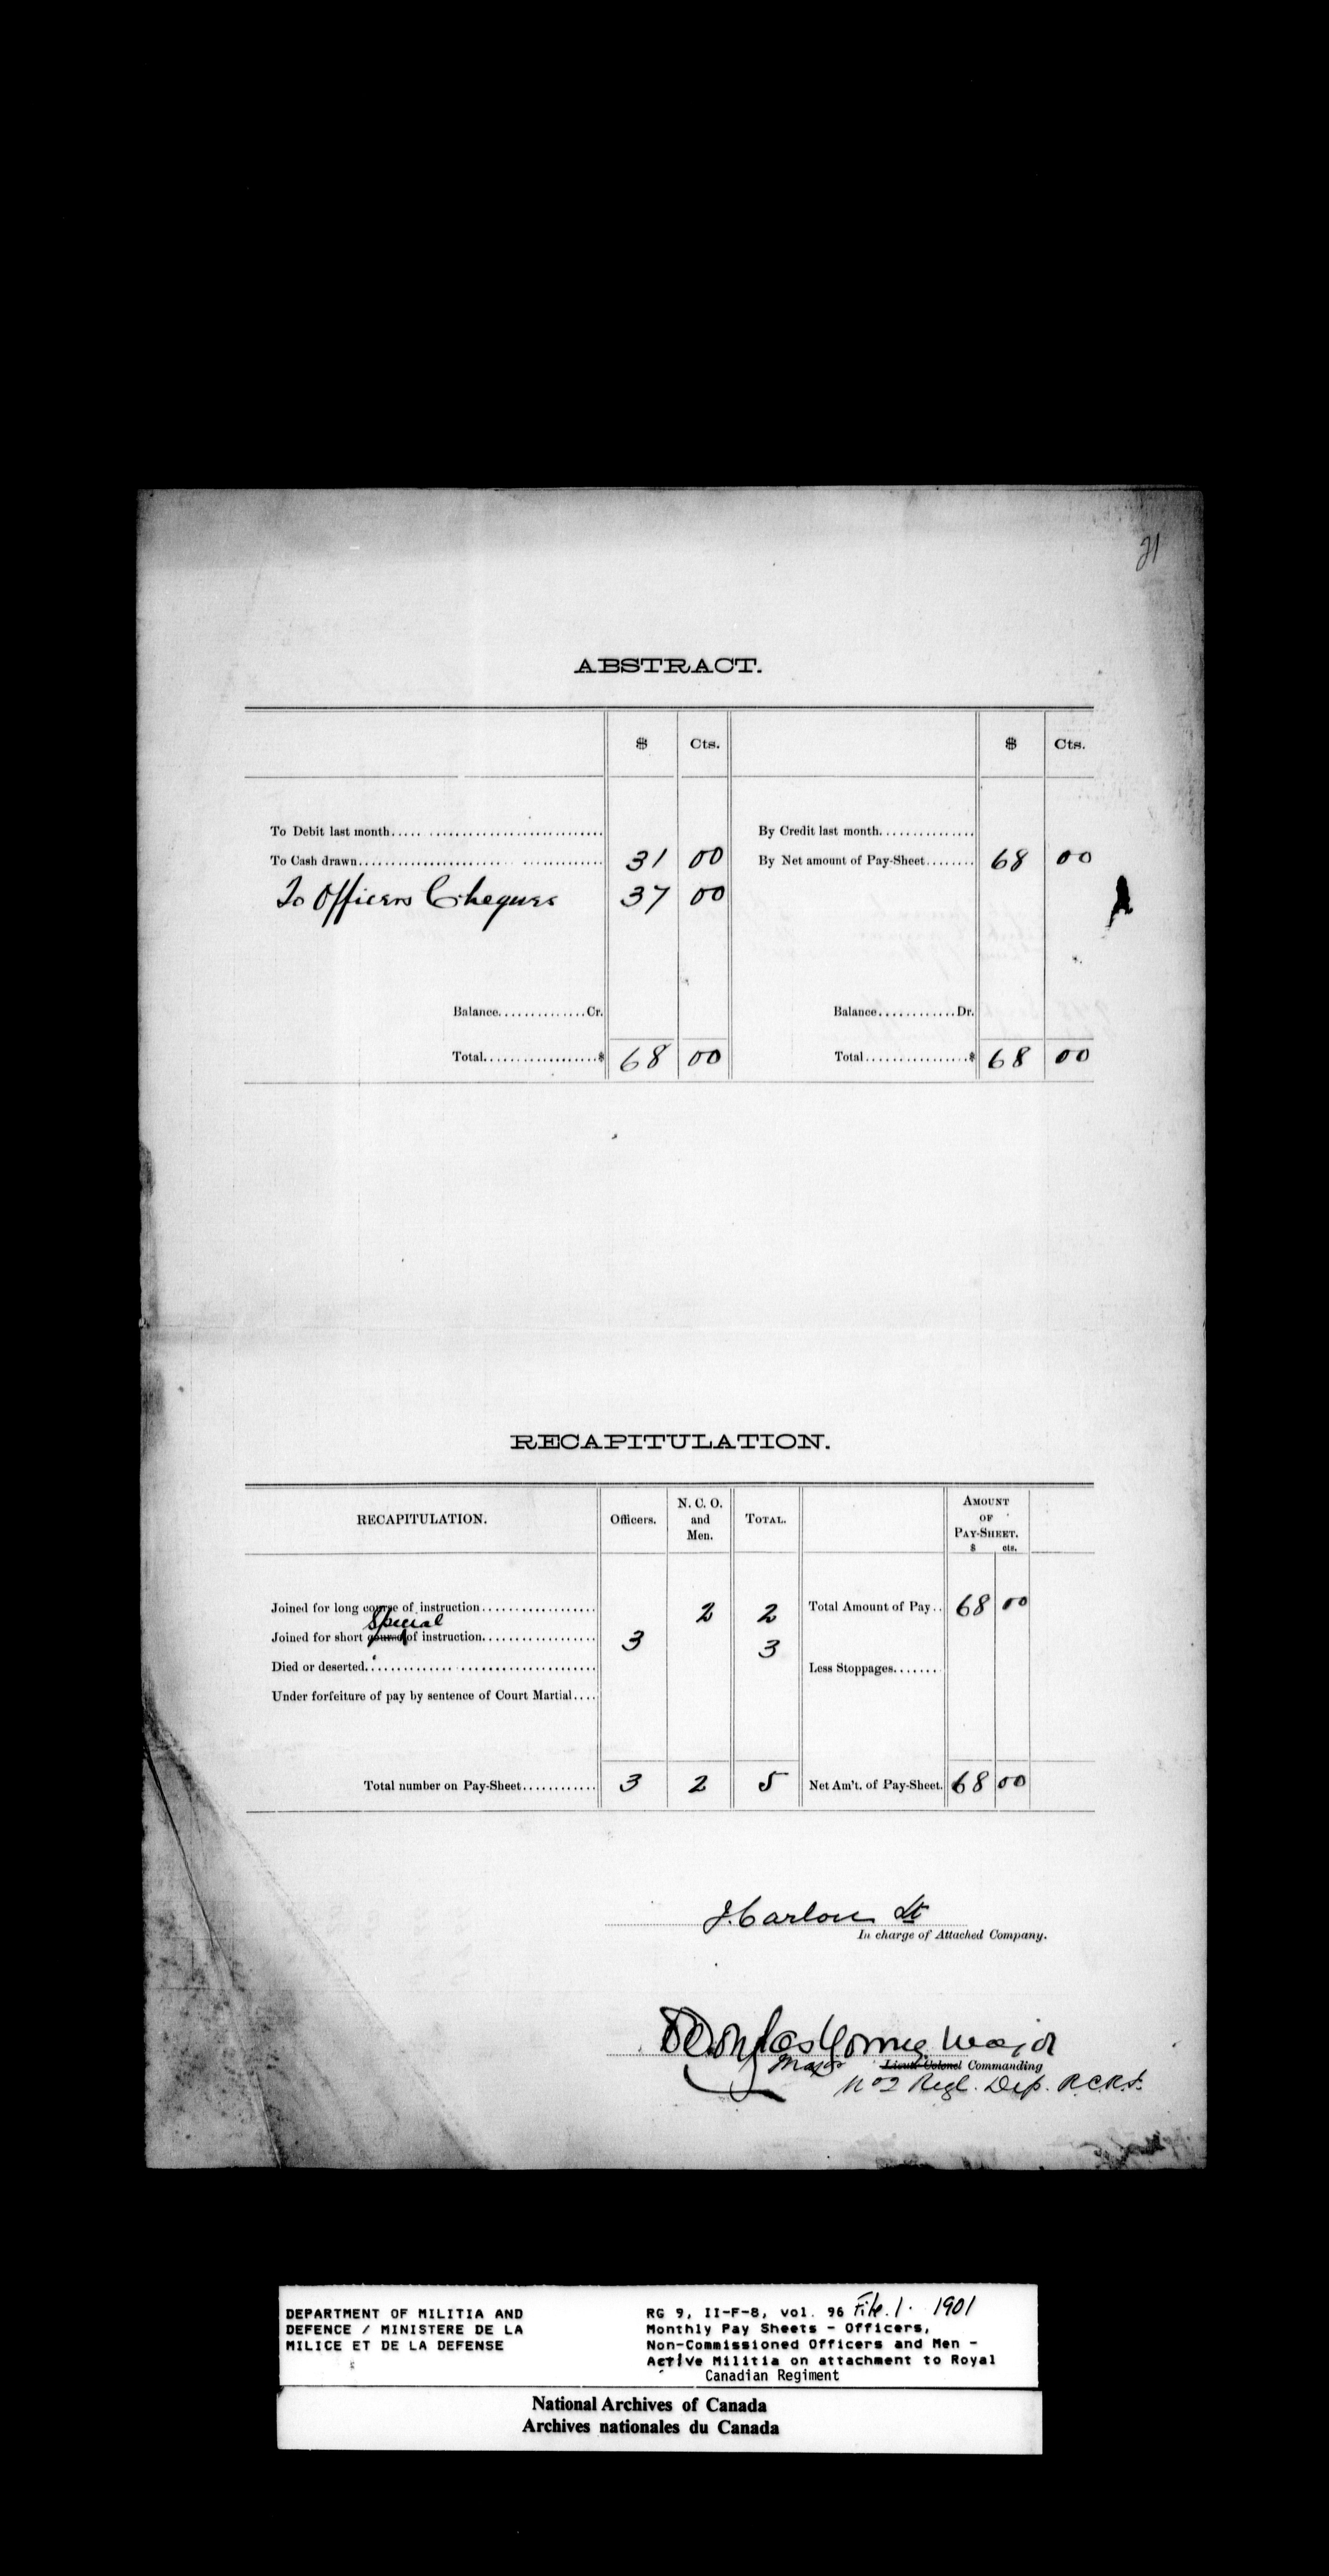 21
ABSTRACT.
$ Cts. $ Cts.
To Debit last month By Credit last month
To Cash drawn 31 00 By Net amount of Pay-Sheet 68 00
To Officers Cheques 37 00
Balance Cr. Balance Dr.
Total $ 68 00 Total $ 68 00
RECAPITULATION.
RECAPITULATION. Officers. N. C. O. and Men. TOTAL. AMOUNT OF PAY-SHEET. $ cts.
Joined for long course of instruction 2 2 Total Amount of Pay 68 00
Special
Joined for short course of instruction 3 3
Died or deserted Less Stoppages
Under forfeiture of pay by sentence of Court Martial
Total number on Pay-Sheet 3 2 5 Net Am't. of Pay-Sheet. 68 00
Lt
In charge of Attached Company.
Major
Major Lieut-Colonel Commanding
No 2 Regl. Dep. R.C.R.I.
DEPARTMENT OF MILITIA AND
DEFENCE / MINISTERE DE LA
MILICE ET DE LA DEFENSE
RG 9, II-F-8, vol. 96 File 1. 1901
Monthly Pay Sheets - Officers,
Non-Commissioned Officers and Men -
Active Militia on attachment to Royal
Canadian Regiment
National Archives of Canada
Archives nationales du Canada